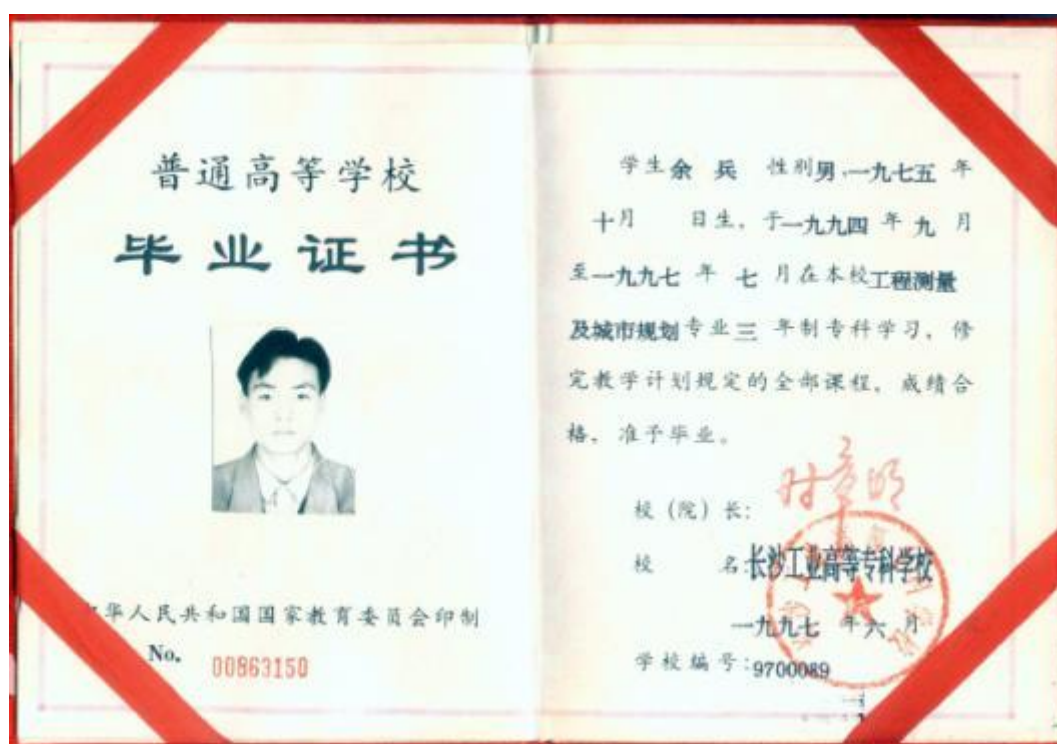 普通高等学校
毕业证书
华人民共和国国家教育委员会印制
No. 00863150
学生余 兵 性别男,一九七五 年
十月 日生，于一九九四 年 九 月
至一九九七 年 七 月在本校工程测量
及城市规划专业三 年制专科学习，修
完教学计划规定的全部课程，成绩合
格，准予毕业。
校（院）长：
校 名:长沙工业高等专科学校
一九九七 年六 月
学校编号:9700089